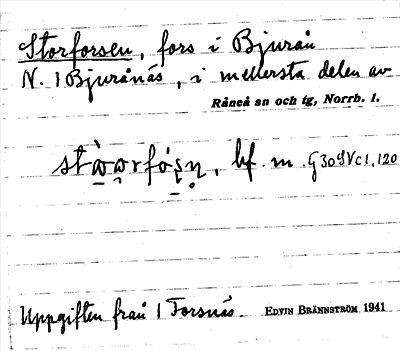 Storforsen, fors i Bjurån
N. 1 Bjurånäs, i mellersta delen av
Råneå sn och tg, Norrb. l.
bf. m. 
Uppgiften från 1 Forsnäs. EDVIN BRÄNNSTRÖM 1941